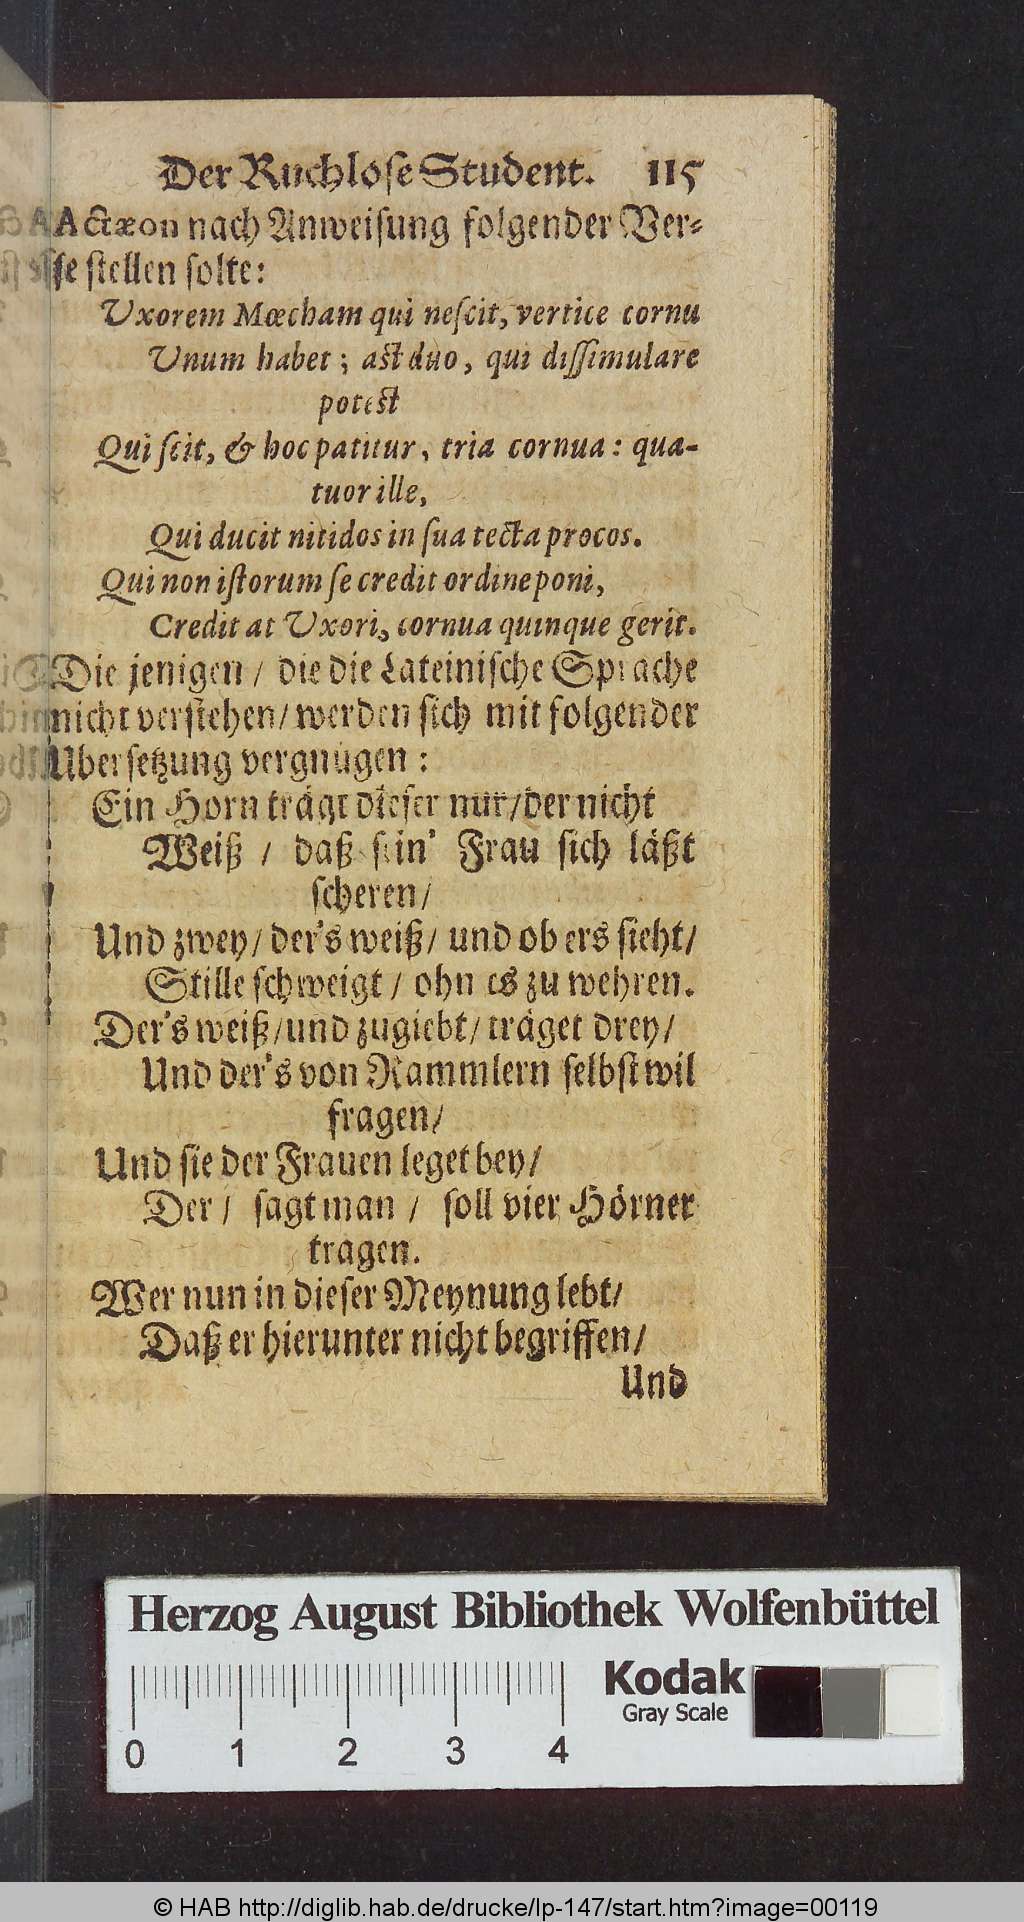 Der Ruchlose Student. 115
Actæon nach Anweisung folgender Ver-
se stellen solte:
Uxorem Mœcham qui nescit, vertice cornu
Unum habet; ast duo, qui dissimulare
potest
Qui scit, & hoc patitur, tria cornua: qua-
tuor ille,
Qui ducit nitidos in sua tecta procos.
Qui non istorum se credit ordine poni,
Credit at Uxori, cornua quinque gerit.
Die jenigen / die die Lateinische Sprache
nicht verstehen / werden sich mit folgender
Ubersetzung vergnügen:
Ein Horn trägt dieser nur / der nicht
Weiß / daß sein' Frau sich läßt
scheren /
Und zwey / der's weiß / und ob ers sieht /
Stille schweigt / ohn es zu wehren.
Der's weiß / und zugiebt / träget drey /
Und der's von Rammlern selbst wil
fragen /
Und sie der Frauen leget bey /
Der / sagt man / soll vier Hörner
tragen.
Wer nun in dieser Meynung lebt /
Daß er hierunter nicht begriffen /
Und
Herzog August Bibliothek Wolfenbüttel
Kodak
Gray Scale
0 1 2 3 4
© HAB http://diglib.hab.de/drucke/lp-147/start.htm?image=00119